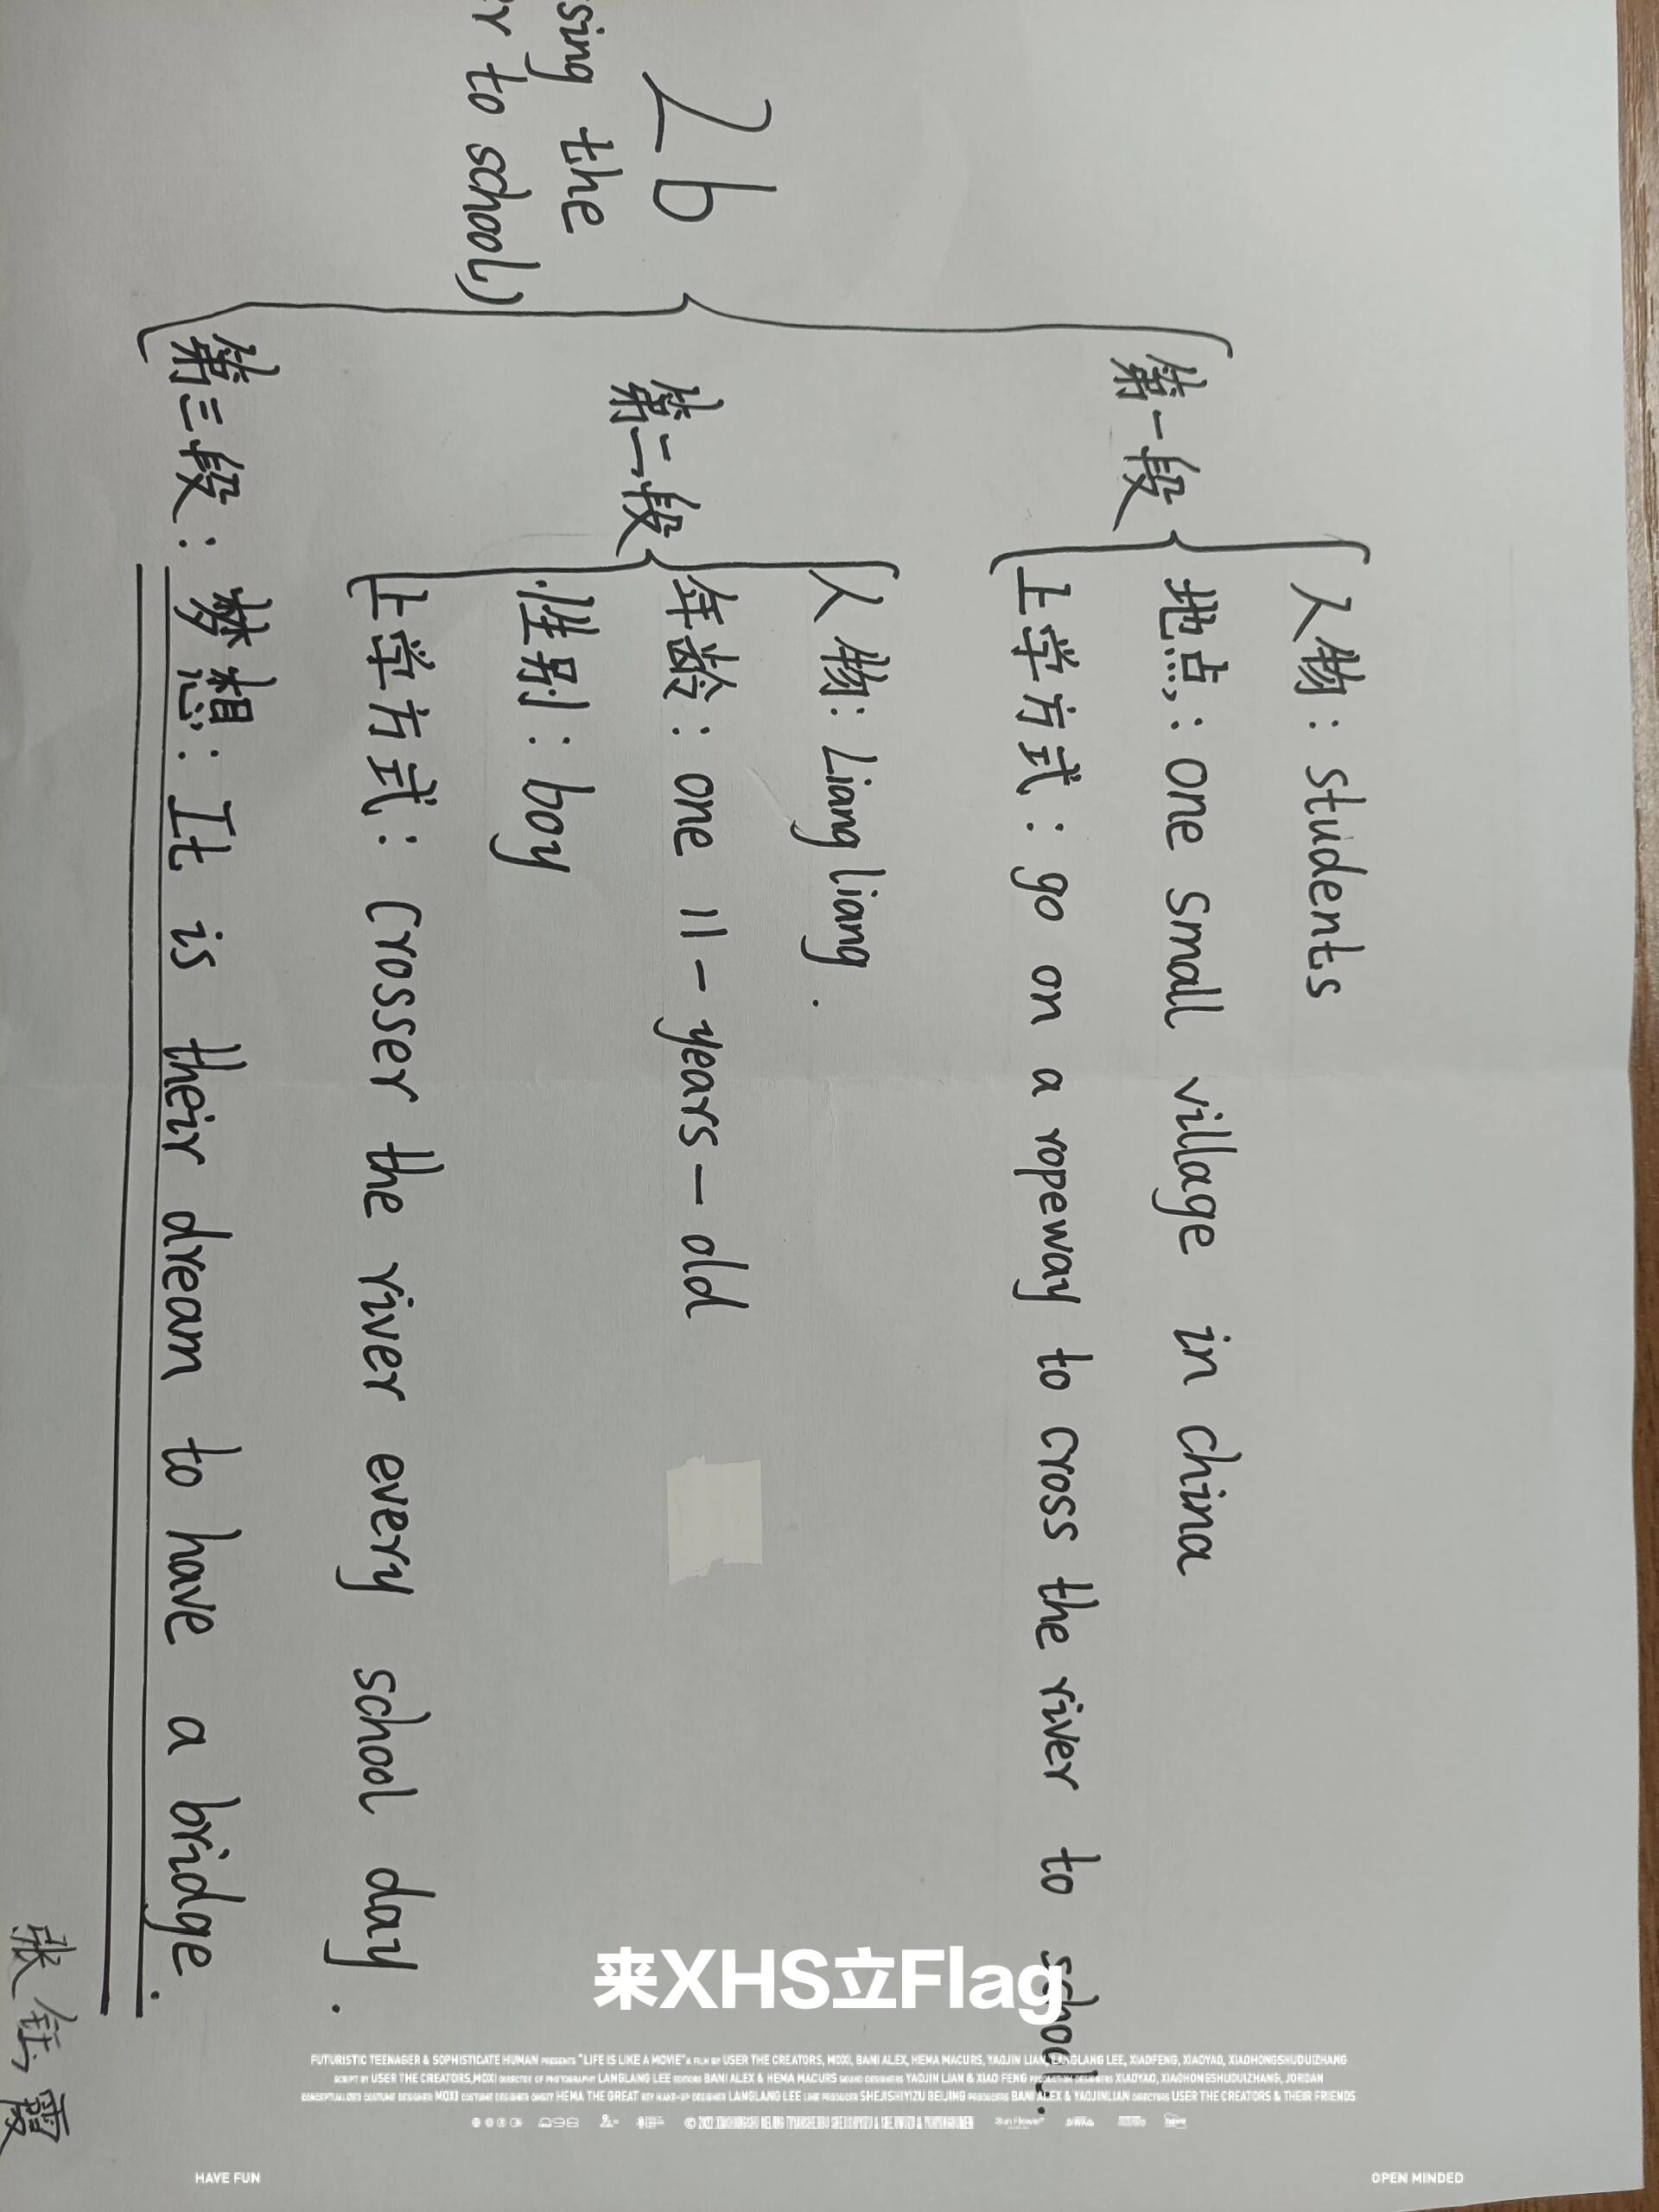 2b
sing the
r to school)
第一段
人物: students
地点: one small village in china
上学方式: go on a ropeway to cross the river to school.
第二段
人物: Liangliang.
年龄: one 11-years-old
性别: boy
上学方式: Crosser the river every school day.
第三段: 梦想: It is their dream to have a bridge.
张钰霞
来XHS立Flag
FUTURISTIC TEENAGER & SOPHISTICATE HUMAN PRESENTS "LIFE IS LIKE A MOVIE" A FILM BY USER THE CREATORS, MOXI, BANI ALEX, HEMA MACURS, YAOJIN LIAN, LANGLANG LEE, XIAOFENG, XIAOYAO, XIAOHONGSHUDUIZHANG
SCRIPT BY USER THE CREATORS,MOXI DIRECTOR OF PHOTOGRAPHY LANGLANG LEE EDITORS BANI ALEX & HEMA MACURS SOUND DESIGNERS YAOJIN LIAN & XIAO FENG PRODUCTION DESIGNERS XIAOYAO, XIAOHONGSHUDUIZHANG, JORDAN
CONCEPTUALIZED COSTUME DESIGNER MOXI COSTUME DESIGNER ONSET HEMA THE GREAT KEY MAKE-UP DESIGNER LANGLANG LEE LINE PRODUCER SHEJISHIYIZU BEIJING PRODUCERS BANI ALEX & YAOJINLIAN DIRECTORS USER THE CREATORS & THEIR FRIENDS
HAVE FUN
OPEN MINDED